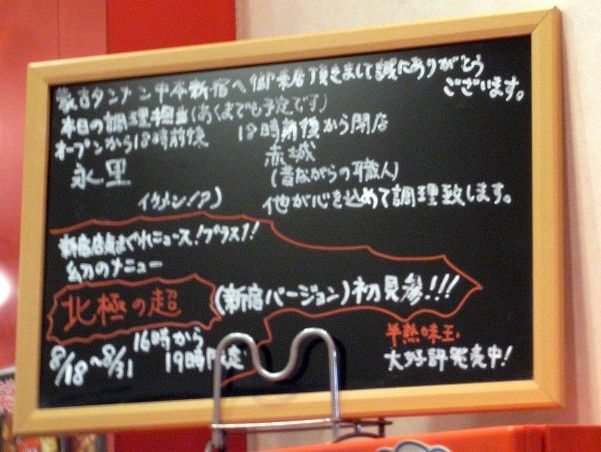 蒙古タンメン中本新宿へ御来店頂きまして誠にありがとう
ございます。
本日の調理担当(あくまでも予定です)
オープンから18時前後 18時前後から閉店
永里 赤城
(昔ながらの職人)
イケメン!ア) 他が心を込めて調理致します。
新宿店気まぐれニュース!プラス1!
幻のメニュー
北極の超 (新宿バージョン)初見参!!!
8/18~8/31 16時から
19時限定
半熟味玉
大好評発売中!